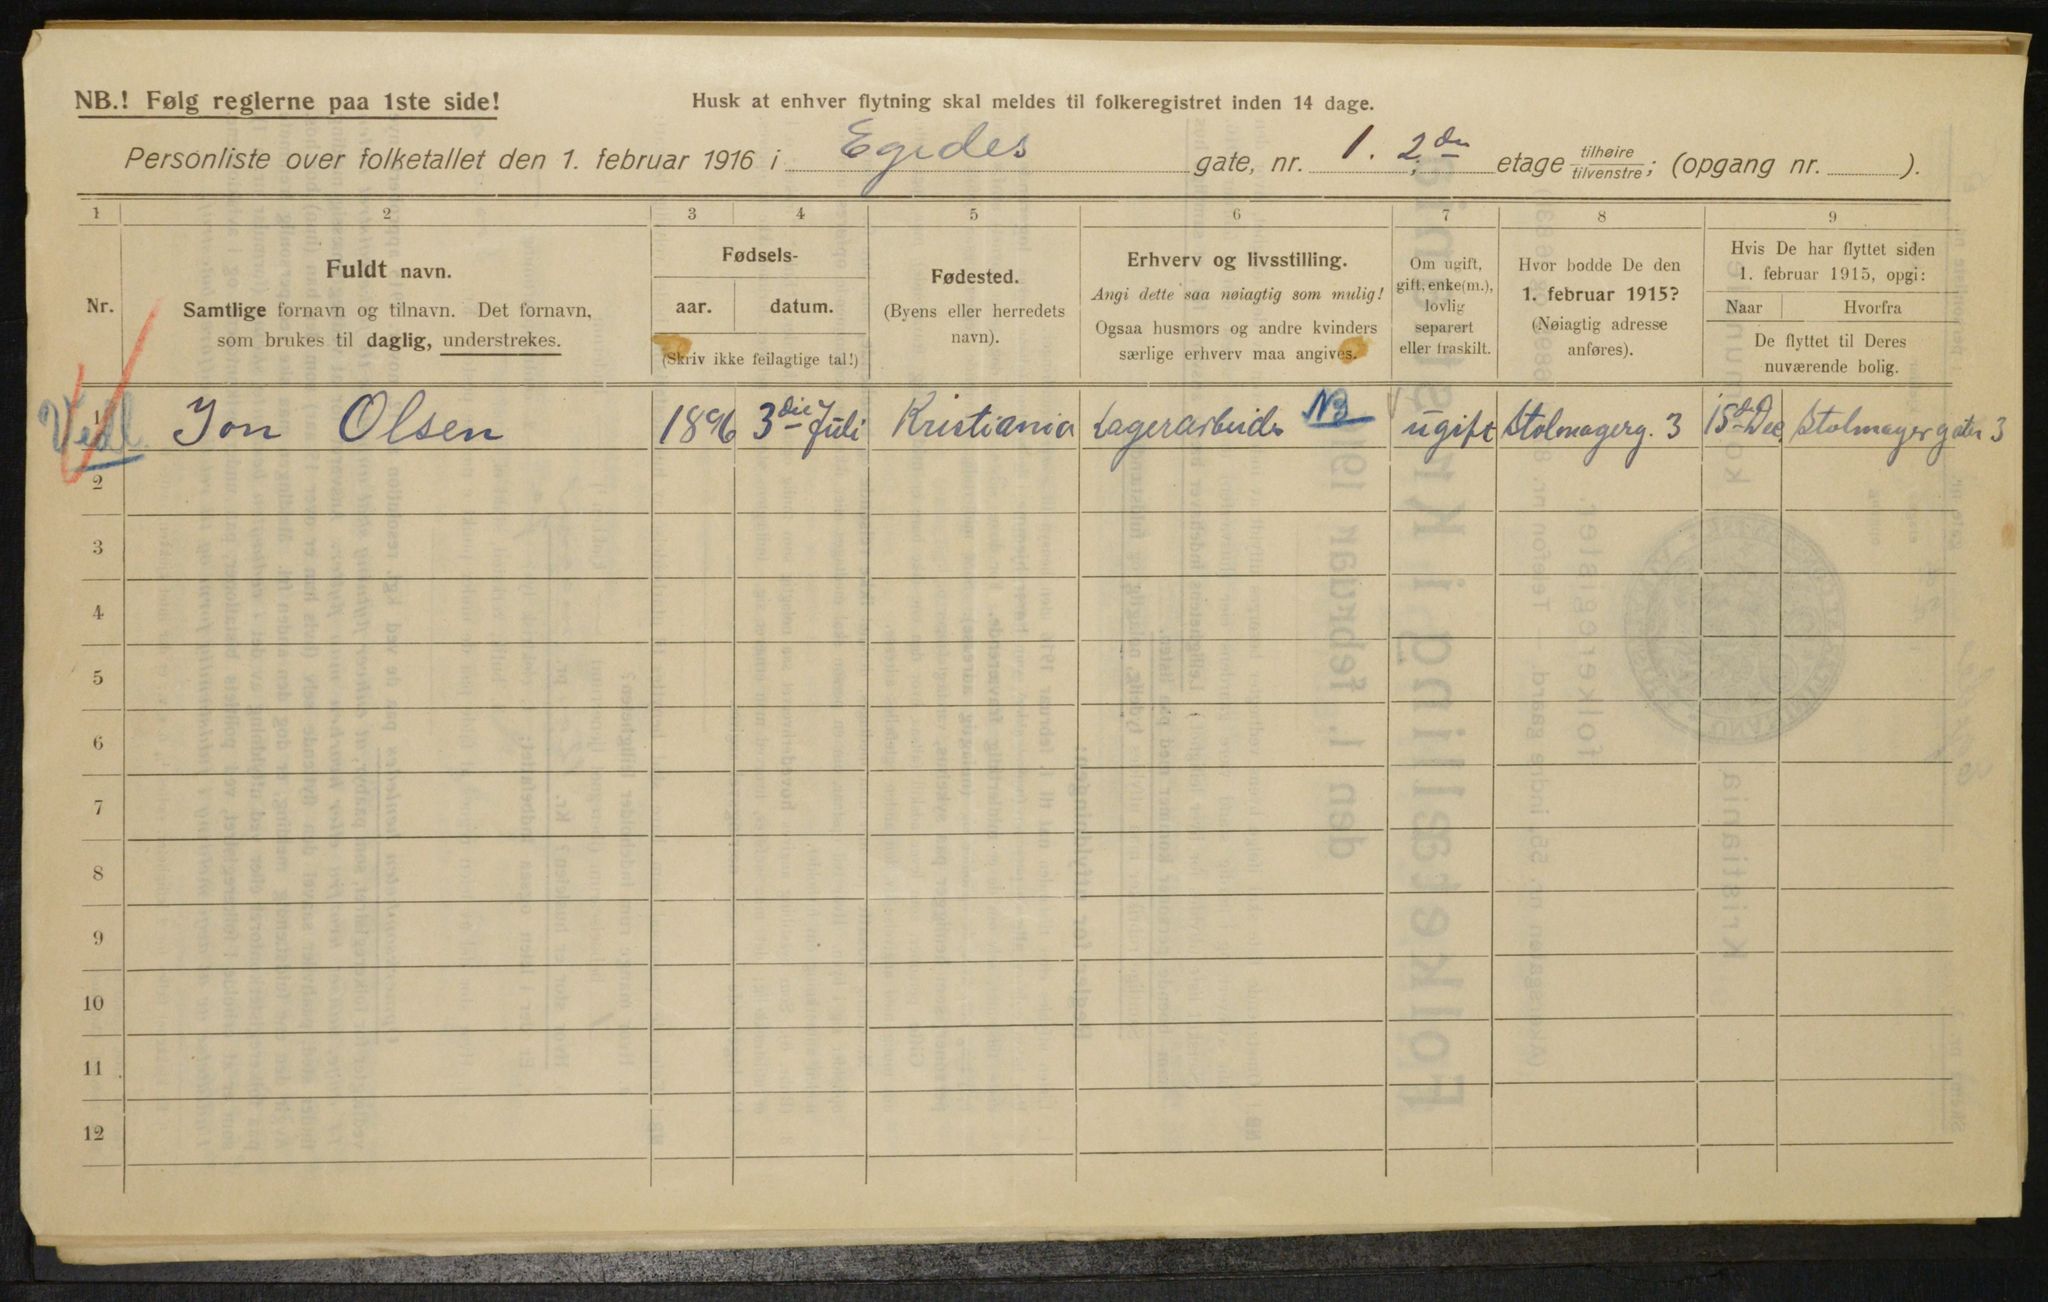 NB.! Følg reglerne paa 1ste side!
Husk at enhver flytning skal meldes til folkeregistret inden 14 dage.
Personliste over folketallet den 1. februar 1916 i Egedes gate, nr. 1. ; 2den etage tilhøire/tilvenstre; (opgang nr. ).
1 2 3 4 5 6 7 8 9
Nr.
Fuldt navn.
Samtlige fornavn og tilnavn. Det fornavn,
som brukes til daglig, understrekes.
Fødsels-
aar. datum.
(Skriv ikke feilagtige tal!)
Fødested.
(Byens eller herredets
navn).
Erhverv og livsstilling.
Angi dette saa nøiagtig som mulig!
Ogsaa husmors og andre kvinders
særlige erhverv maa angives.
Om ugift,
gift, enke(m.),
lovlig
separert
eller fraskilt.
Hvor bodde De den
1. februar 1915?
(Nøiagtig adresse
anføres).
Hvis De har flyttet siden
1. februar 1915, opgi:
Naar Hvorfra
De flyttet til Deres
nuværende bolig.
1 Jon Olsen 1896 3die Juli Kristiania Lagerarbeider NB ugift Stolmagerg. 3 15de Dec. Stolmager gaten 3
2
3
4
5
6
7
8
9
10
11
12